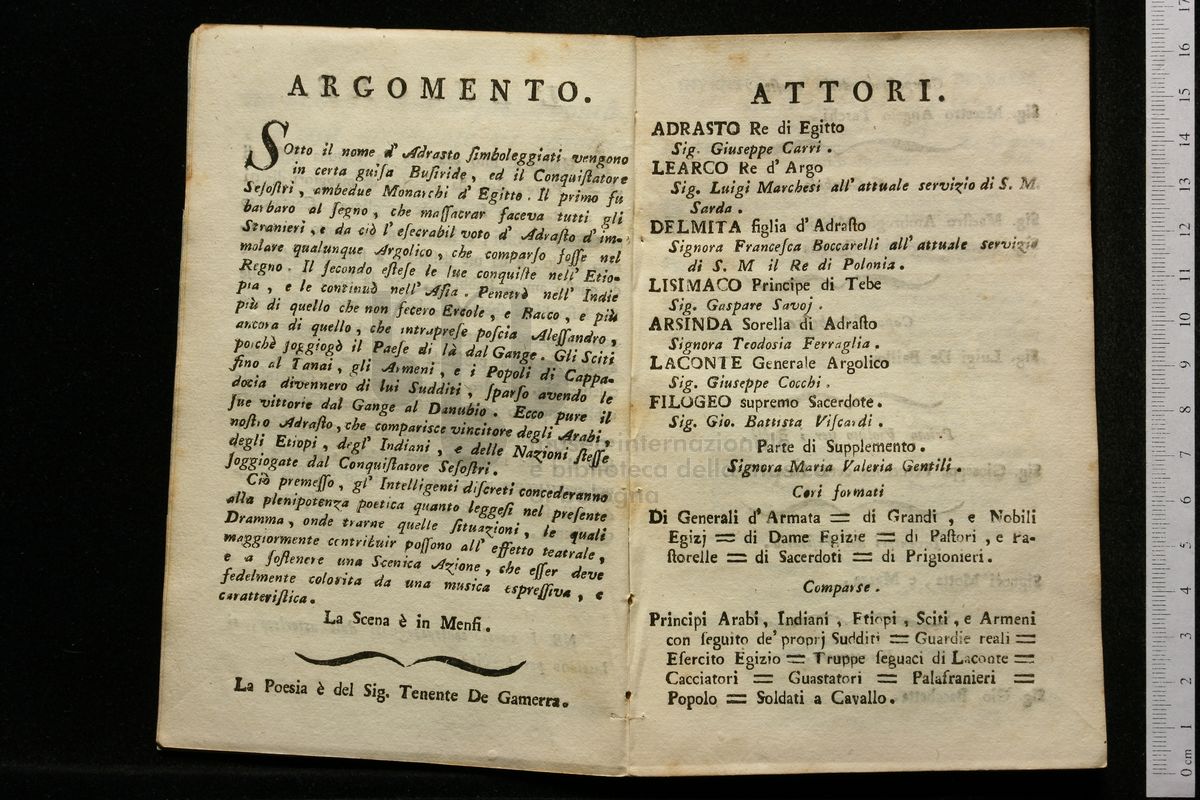 ARGOMENTO.
Sotto il nome d' Adrasto ſimboleggiati vengono
in certa guiſa Buſiride, ed il Conquiſtatore
Seſoſtri, ambedue Monarchi d' Egitto. Il primo fù
barbaro al ſegno, che maſſacrar faceva tutti gli
Stranieri, e da ciò l' eſecrabil voto d' Adraſto d' im-
molare qualunque Argolico, che comparſo foſſe nel
Regno. Il ſecondo eſteſe le ſue conquiſte nell' Etio-
pia, e le continuò nell' Aſia. Penetrò nell' Indie
più di quello che non fecero Ercole, e Bacco, e più
ancora di quello, che intrapreſe poſcia Aleſſandro,
poichè ſoggiogò il Paeſe di là dal Gange. Gli Sciti
fino al Tanai, gli Armeni, e i Popoli di Cappa-
docia divennero di lui Sudditi, ſparſo avendo le
ſue vittorie dal Gange al Danubio. Ecco pure il
noſtro Adraſto, che compariſce vincitore degli Arabi,
degli Etiopi, degl' Indiani, e delle Nazioni ſteſſe
ſoggiogate dal Conquiſtatore Seſoſtri.
Ciò premeſſo, gl' Intelligenti diſcreti concederanno
alla plenipotenza poetica quanto leggeſi nel preſente
Dramma, onde trarne quelle ſituazioni, le quali
maggiormente contribuir poſſono all' effetto teatrale,
e a ſoſtenere una Scenica Azione, che eſſer deve
fedelmente colorita da una muſica eſpreſſiva, e
caratteriſtica.
La Scena è in Menfi.
La Poesia è del Sig. Tenente De Gamerra.
ATTORI.
ADRASTO Re di Egitto
Sig. Giuseppe Carri.
LEARCO Re d' Argo
Sig. Luigi Marchesi all' attuale servizio di S. M.
Sarda.
DELMITA figlia d' Adraſto
Signora Franceſca Boccarelli all' attuale servizio
di S. M il Re di Polonia.
LISIMACO Principe di Tebe
Sig. Gaspare Savoj.
ARSINDA Sorella di Adraſto
Signora Teodosia Ferraglia.
LACONTE Generale Argolico
Sig. Giuseppe Cocchi.
FILOGEO supremo Sacerdote.
Sig. Gio. Battista Viſcardi.
Parte di Supplemento.
Signora Maria Valeria Gentili.
Cori formati
Di Generali d' Armata = di Grandi, e Nobili
Egizj = di Dame Egizie = di Paſtori, e Pa-
ſtorelle = di Sacerdoti = di Prigionieri.
Comparse.
Principi Arabi, Indiani, Etiopi, Sciti, e Armeni
con ſeguito de' proprj Sudditi = Guardie reali =
Eſercito Egizio = Truppe ſeguaci di Laconte =
Cacciatori = Guastatori = Palafranieri =
Popolo = Soldati a Cavallo.